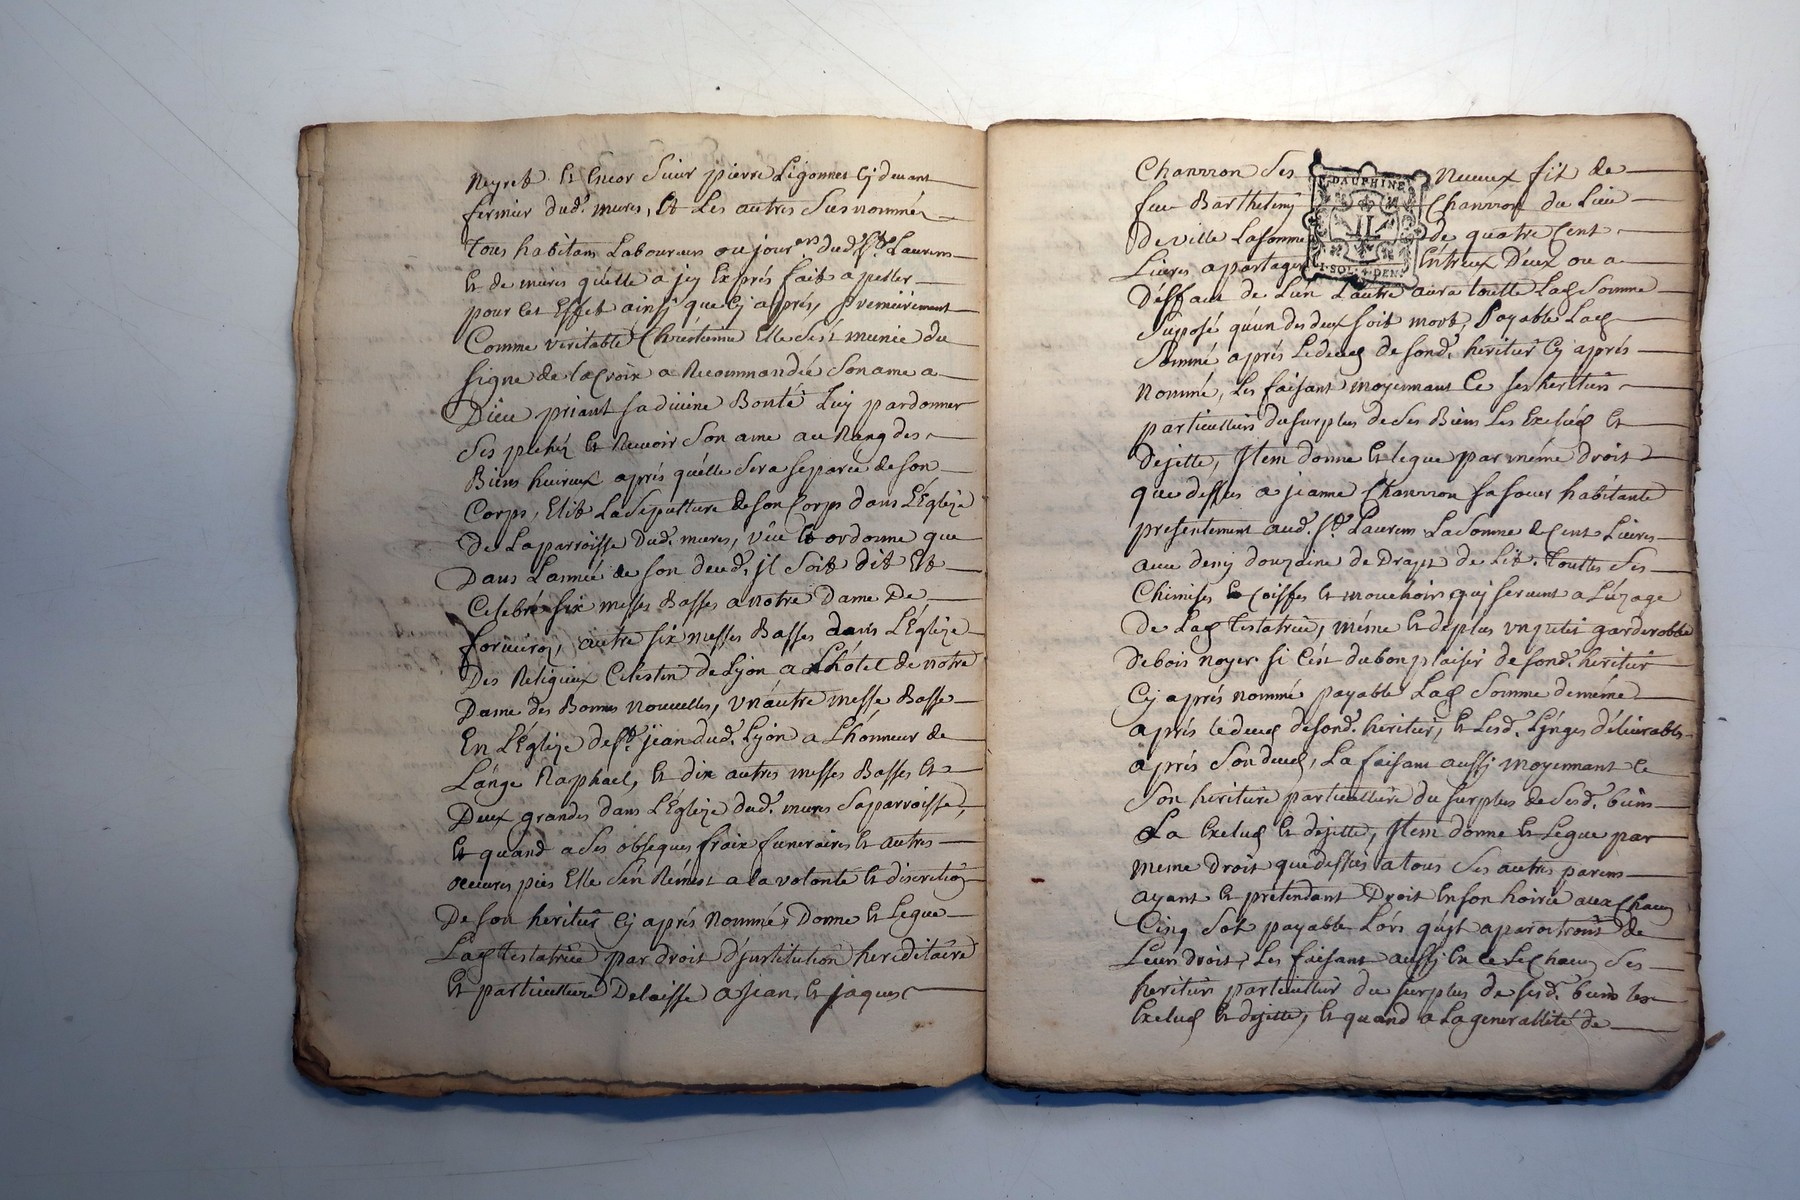 Neyret Et Encor Sieur pierre Ligonnet Cy devant
fermier dud. mures, Et Les autres Susnommés
Tous habitans Laboureurs ou jour.ers dud. St. Laurens
Et de mures quelle a jcy Exprés fait apeller
pour Cet Effet ainsj que Cy aprés, premieirement
Comme veritable Chrétienne Elle s'est munie du
signe de la Croix a Recommandée Son ame a
Dieu priant sa divine Bonté Luy pardonner
Ses pechéz Et Recevoir Son ame au Rang des
Biens heureux aprés quélle Sera Separée de son
Corps, Elit La Sepulture de son Corps dans L'Eglize
De La parroisse Dud. mures, veut Et ordonne que
Dans L'année de son deced. jl Soit dit Et
Celebré six messes Basses a notre Dame De
forvieres, autre six messes Basses dans L'Eglize
Des Religieux Celestin de Lyon a L'hôtel de notre
Dame des Bonnes nouvelles, vn autre messe Basse
En L'Eglize de St. jean dud. Lyon a L'honneur de
L'ange Raphael, Et dix autres messes Basses Et
Deux grandes dans L'Eglize dud. mures Saparroisse,
Et quand a Ses obseques fraix funeraires Et autres
oeuvres pies Elle S'en Rémet a la volonté Et discretion
De son heritier Cy aprés Nommé, Donne Et Legue
Lad. testatrice par droit d'jnstitution hereditaire
Et particulliere Delaisse a jean, Et jaques
Chanrron Ses Neveux fils de
feu Barthelemy Chanrron du Lieu
De ville La somme de quatre Cent
Livres a partager Entreux Deux ou a
Déffaut de L'un L'autre aura toutte Lad. Somme
Suposé qu'un des deux soit mort, Payable Lad.
Somme aprés Le deced de sond. heritier Cy aprés
Nommé, Les faisant moyennant Ce ses heritiers
particulliers du surplus de Ses Biens Les Exclud Et
Dejette, Jtem donne Et légue par méme droit
que dessus a jeanne Chanrron sa soeur habitante
presentement aud. St. Laurens La Somme de Cent Livres
avec demy douzaine de Draps de Lit, Touttes Ses
Chimises Coiffes Et mouchoirs quj servent a L'uzage
De Lad. testatrice, méme Et deplus vn petit garderobbe
de bois noyer si C'est du bon plaisir de sond. heritier
Cy aprés nommé payable Lad. Somme de méme
aprés le deced de sond. heritier, Et Lesd. Lynges délivrables
aprés Son deced, La faisant aussj moyennant Ce
Son heritiere particulliere du surplus de Sesd. biens
La Exclud Et dejette, Jtem donne Et Legue par
meme droit que dessus a tous Ses autres parens
ayant Et pretendant Droit En son hoirie a Chacun
Cinq Sols payable Lors qu'jl aparoitront de
Leurs droit, Les faisant aussj En Ce Chacun Ses
heritiers particulliers du surplus de sesd. biens les
Exclud Et dejette, Et quand a La generallité de
DAUPHINE
1·SOL·4·DEN